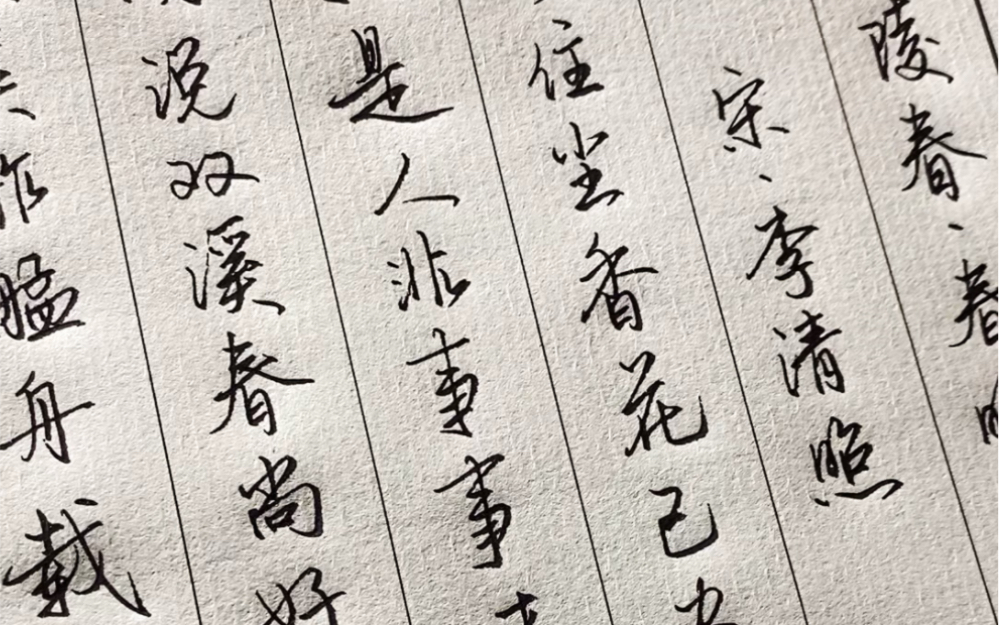 陵春·春
宋·李清照
住尘香花已
是人非事事
说双溪春尚好
舴艋舟载